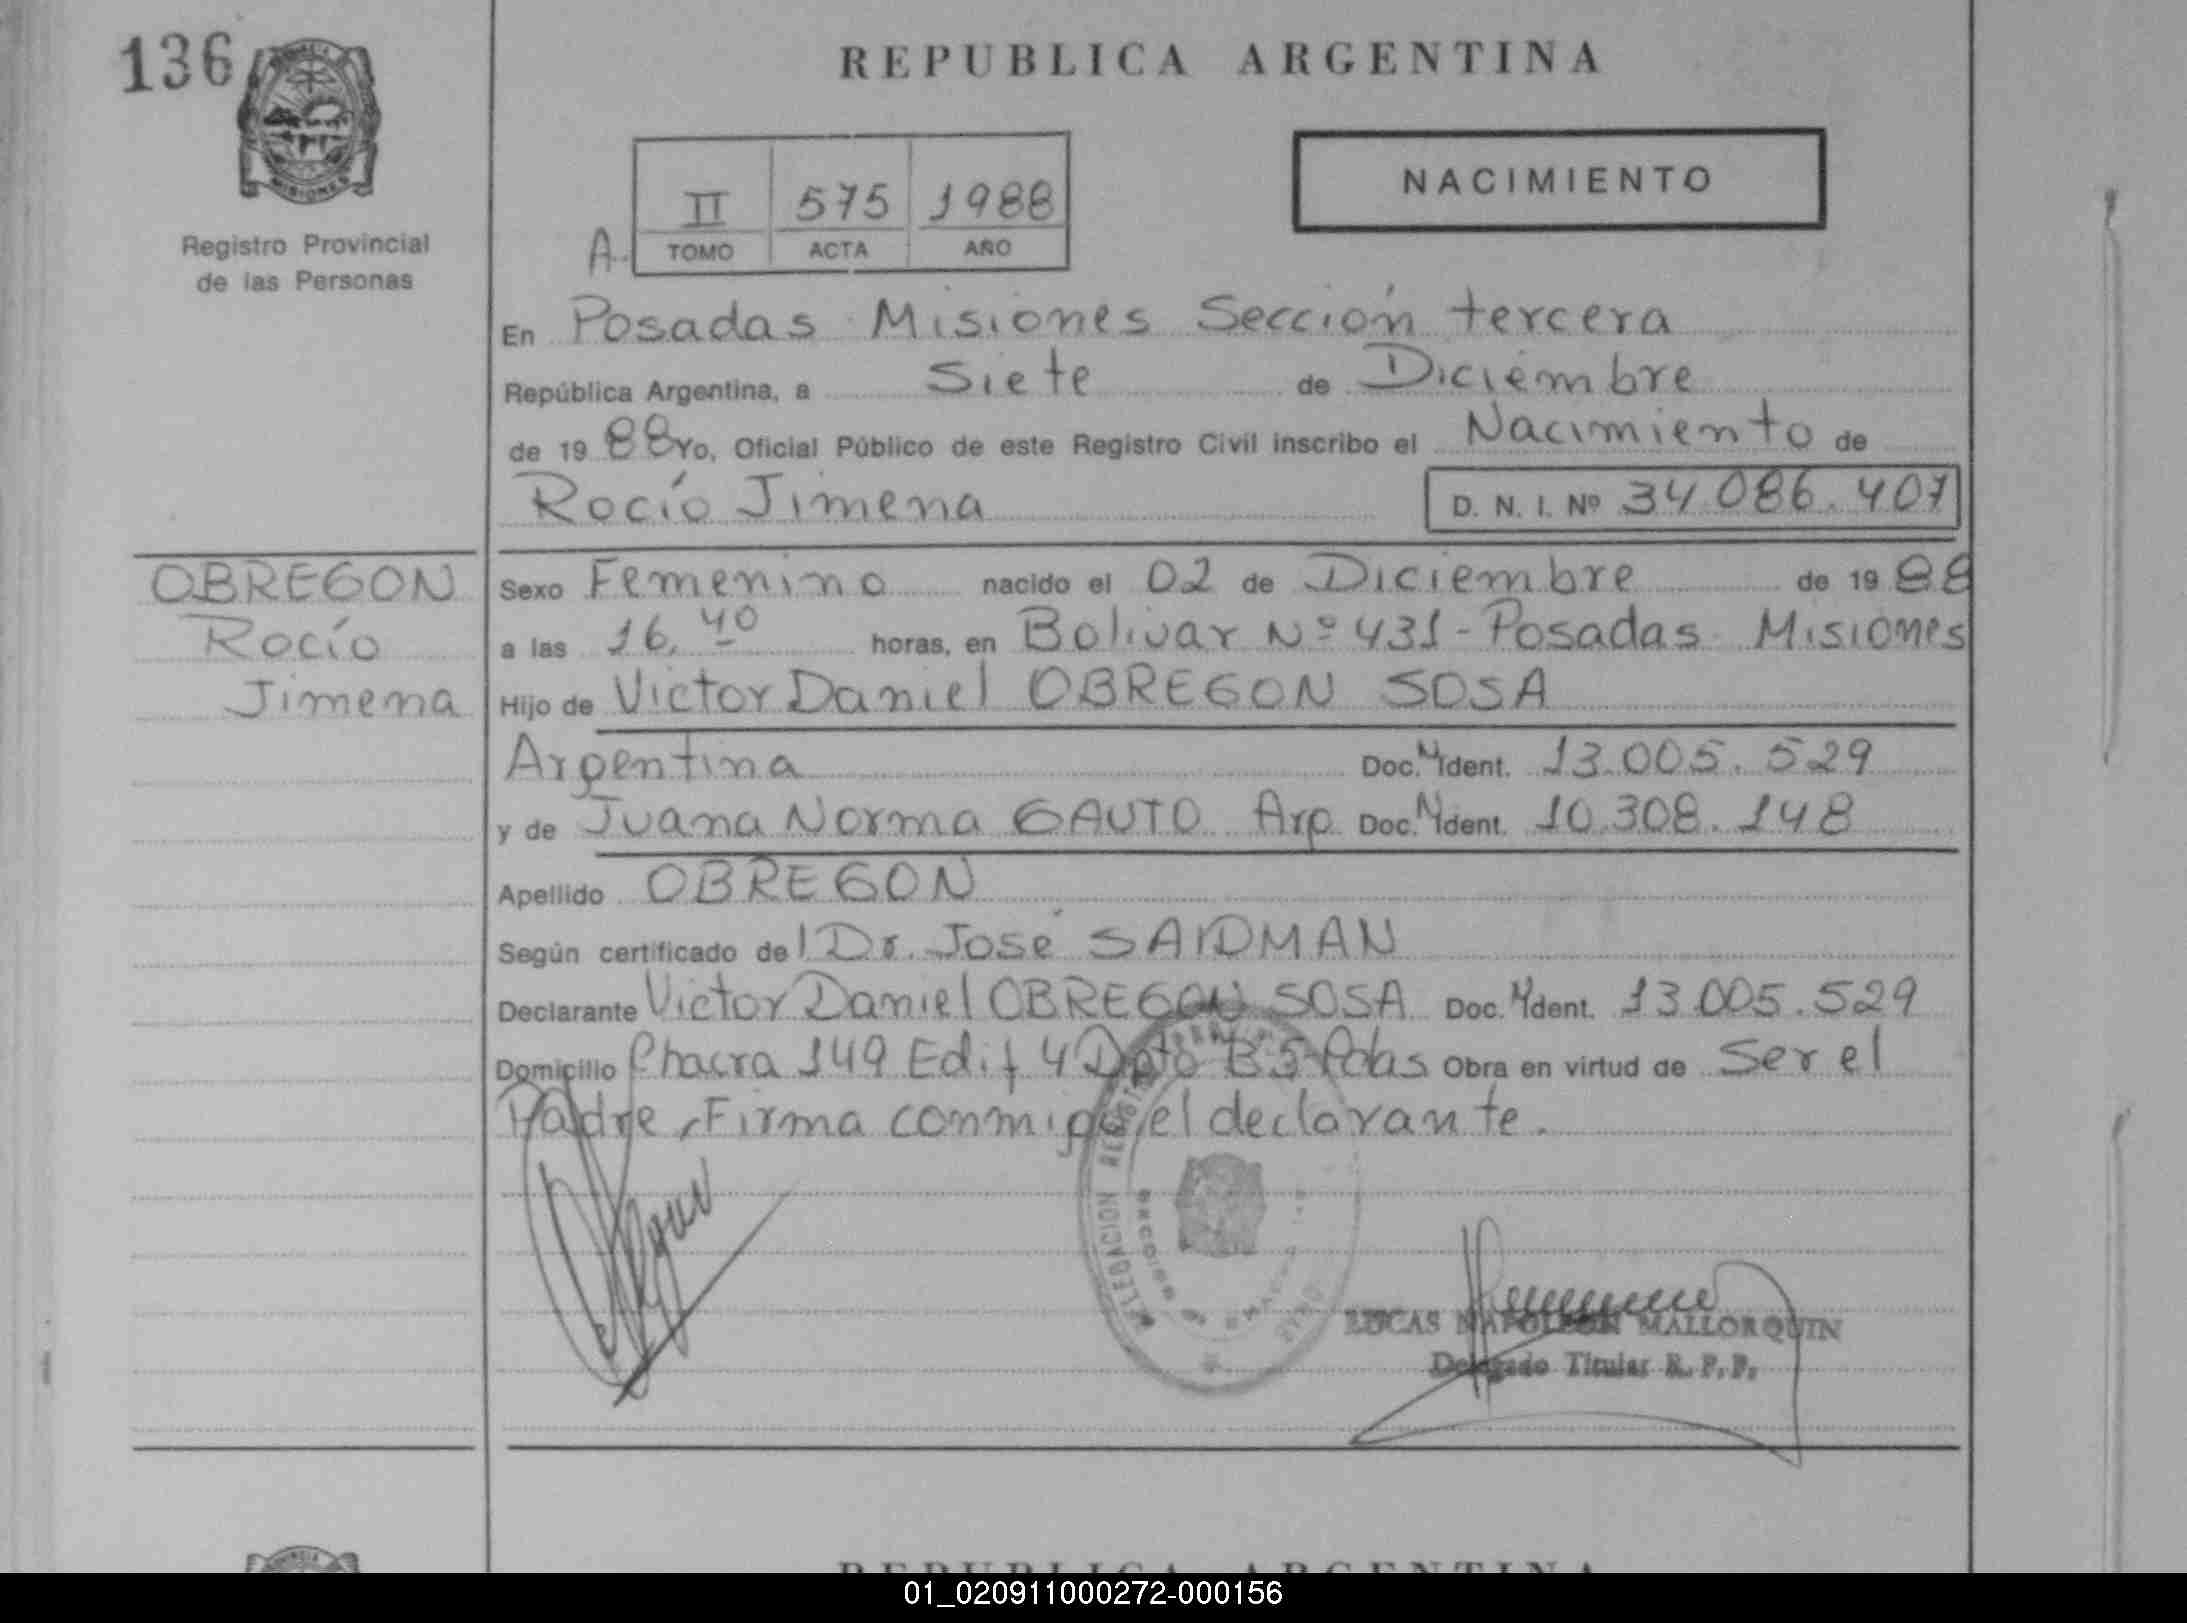 136
PROVINCIA
MISIONES
Registro Provincial
de las Personas
REPUBLICA ARGENTINA
NACIMIENTO
A.
II 575 1988
TOMO ACTA AÑO
En Posadas Misiones Sección tercera
República Argentina, a Siete de Diciembre
de 19 88 Yo, Oficial Público de este Registro Civil inscribo el Nacimiento de
Rocío Jimena D. N. I. Nº 34.086.407
OBREGON
Rocío
Jimena
Sexo Femenino nacido el 02 de Diciembre de 19 88
a las 16,40 horas, en Bolivar Nº 431 - Posadas Misiones
Hijo de Victor Daniel OBREGON SOSA
Argentina Doc. N Ident. 13.005.529
y de Juana Norma GAUTO Arg Doc. N Ident. 10.308.148
Apellido OBREGON
Según certificado de l Dr. José SAIDMAN
Declarante Victor Daniel OBREGON SOSA Doc. N Ident. 13.005.529
Domicilio Chacra 149 Edif 4 Dpto B 5 Pdas Obra en virtud de Ser el
Padre, Firma conmigo el declarante.
LUCAS NAPOLEON MALLORQUIN
Delegado Titular R. P. P.
REPUBLICA ARGENTINA
01_020911000272-000156